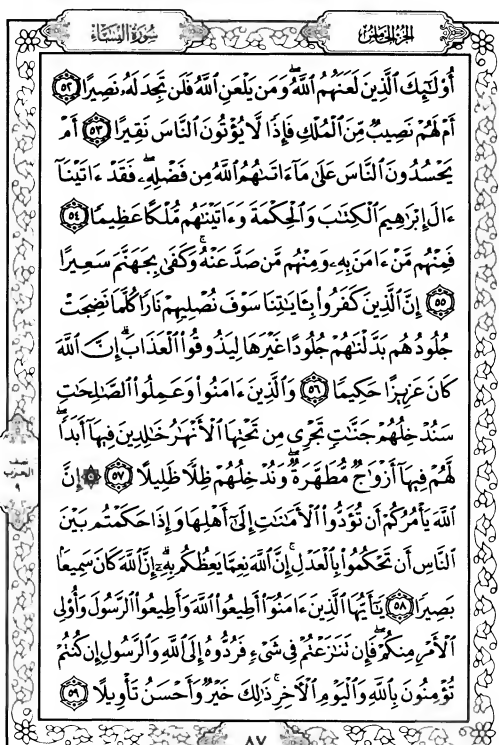 الجزء الخامس
سورة النساء
أُوْلَـٰٓئِكَ ٱلَّذِينَ لَعَنَهُمُ ٱللَّهُ ۖ وَمَن يَلْعَنِ ٱللَّهُ فَلَن تَجِدَ لَهُۥ نَصِيرًا ٥٢
أَمْ لَهُمْ نَصِيبٌ مِّنَ ٱلْمُلْكِ فَإِذًا لَّا يُؤْتُونَ ٱلنَّاسَ نَقِيرًا ٥٣ أَمْ
يَحْسُدُونَ ٱلنَّاسَ عَلَىٰ مَآ ءَاتَىٰهُمُ ٱللَّهُ مِن فَضْلِهِۦ ۖ فَقَدْ ءَاتَيْنَآ
ءَالَ إِبْرَٰهِيمَ ٱلْكِتَـٰبَ وَٱلْحِكْمَةَ وَءَاتَيْنَـٰهُم مُّلْكًا عَظِيمًا ٥٤
فَمِنْهُم مَّنْ ءَامَنَ بِهِۦ وَمِنْهُم مَّن صَدَّ عَنْهُ ۚ وَكَفَىٰ بِجَهَنَّمَ سَعِيرًا
٥٥ إِنَّ ٱلَّذِينَ كَفَرُوا۟ بِـَٔايَـٰتِنَا سَوْفَ نُصْلِيهِمْ نَارًا كُلَّمَا نَضِجَتْ
جُلُودُهُم بَدَّلْنَـٰهُمْ جُلُودًا غَيْرَهَا لِيَذُوقُوا۟ ٱلْعَذَابَ ۗ إِنَّ ٱللَّهَ
كَانَ عَزِيزًا حَكِيمًا ٥٦ وَٱلَّذِينَ ءَامَنُوا۟ وَعَمِلُوا۟ ٱلصَّـٰلِحَـٰتِ
سَنُدْخِلُهُمْ جَنَّـٰتٍ تَجْرِى مِن تَحْتِهَا ٱلْأَنْهَـٰرُ خَـٰلِدِينَ فِيهَآ أَبَدًا ۖ
لَّهُمْ فِيهَآ أَزْوَٰجٌ مُّطَهَّرَةٌ ۖ وَنُدْخِلُهُمْ ظِلًّا ظَلِيلًا ٥٧ ۞ إِنَّ
ٱللَّهَ يَأْمُرُكُمْ أَن تُؤَدُّوا۟ ٱلْأَمَـٰنَـٰتِ إِلَىٰٓ أَهْلِهَا وَإِذَا حَكَمْتُم بَيْنَ
ٱلنَّاسِ أَن تَحْكُمُوا۟ بِٱلْعَدْلِ ۚ إِنَّ ٱللَّهَ نِعِمَّا يَعِظُكُم بِهِۦٓ ۗ إِنَّ ٱللَّهَ كَانَ سَمِيعًۢا
بَصِيرًا ٥٨ يَـٰٓأَيُّهَا ٱلَّذِينَ ءَامَنُوٓا۟ أَطِيعُوا۟ ٱللَّهَ وَأَطِيعُوا۟ ٱلرَّسُولَ وَأُو۟لِى
ٱلْأَمْرِ مِنكُمْ ۖ فَإِن تَنَـٰزَعْتُمْ فِى شَىْءٍ فَرُدُّوهُ إِلَى ٱللَّهِ وَٱلرَّسُولِ إِن كُنتُمْ
تُؤْمِنُونَ بِٱللَّهِ وَٱلْيَوْمِ ٱلْـَٔاخِرِ ۚ ذَٰلِكَ خَيْرٌ وَأَحْسَنُ تَأْوِيلًا ٥٩
نصف
الحزب
٩
٨٧